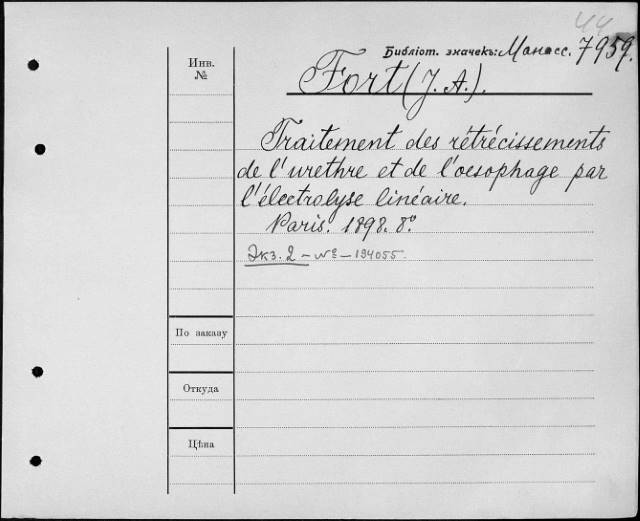 44
Библіот. значекъ: Манасс. 7959.
Инв.
№
Fort (J. A.).
Traitement des rétrécissements
de l'urethre et de l'oesophage par
l'électrolyse linéaire.
Paris. 1898. 8°.
Экз. 2 – № – 194055.
По заказу
Откуда
Цѣна